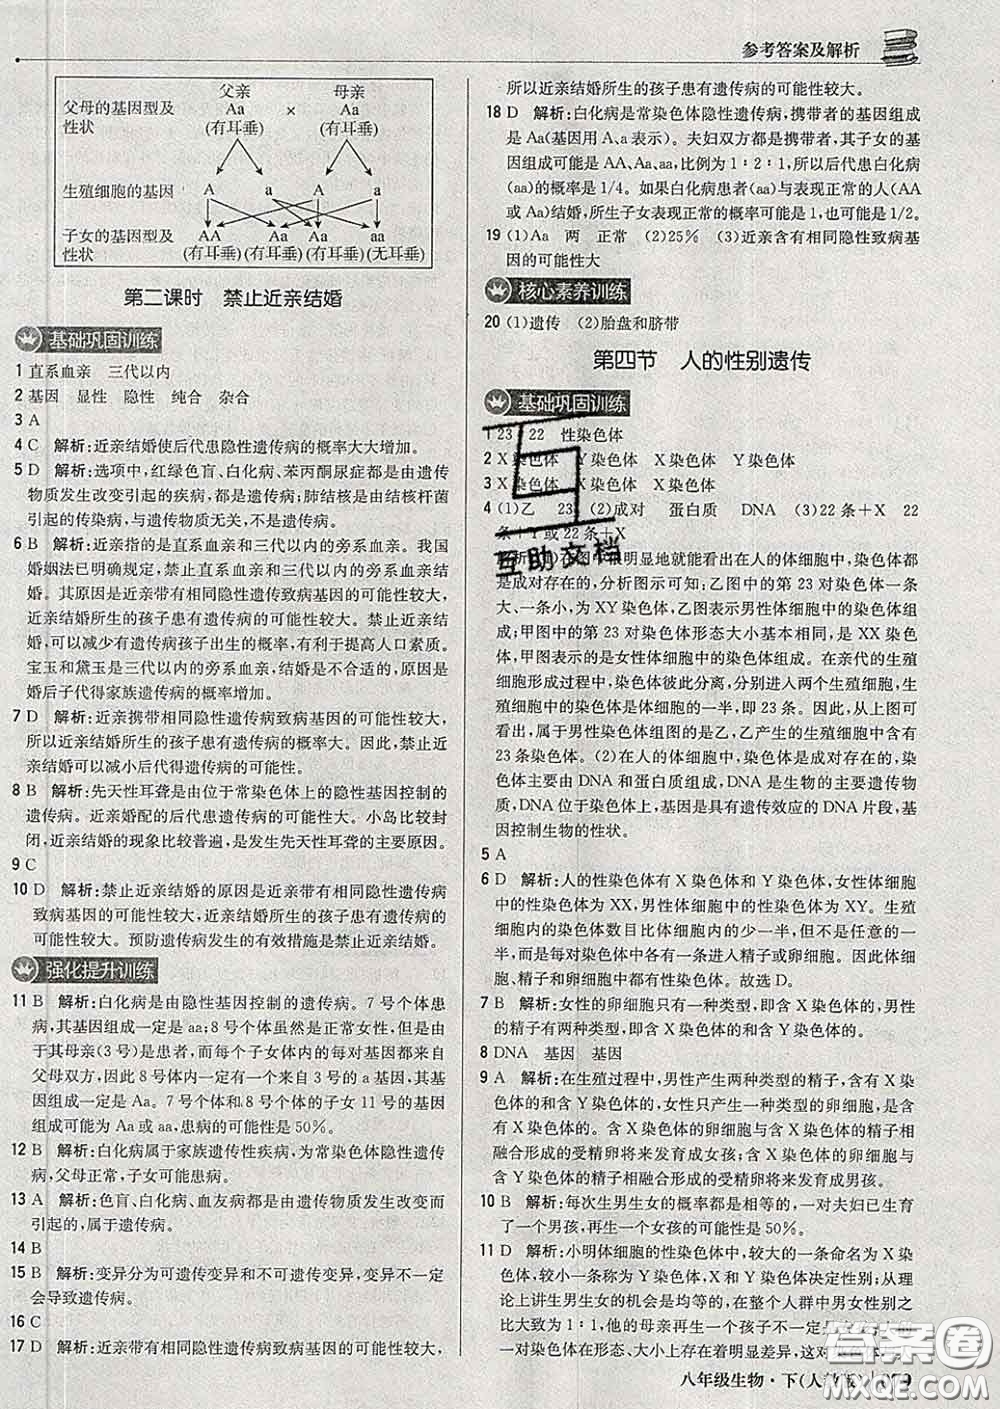 参考答案及解析
父亲 母亲
父母的基因型及 Aa × Aa
性状 (有耳垂) (有耳垂)
生殖细胞的基因 A a A a
子女的基因型及 AA Aa Aa aa
性状 (有耳垂)(有耳垂)(有耳垂)(无耳垂)
第二课时 禁止近亲结婚
基础巩固训练
1 直系血亲 三代以内
2 基因 显性 隐性 纯合 杂合
3 A
4 C 解析:近亲结婚使后代患隐性遗传病的概率大大增加。
5 D 解析:选项中,红绿色盲、白化病、苯丙酮尿症都是由遗传
物质发生改变引起的疾病,都是遗传病;肺结核是由结核杆菌
引起的传染病,与遗传物质无关,不是遗传病。
6 B 解析:近亲指的是直系血亲和三代以内的旁系血亲。我国
婚姻法已明确规定,禁止直系血亲和三代以内的旁系血亲结
婚。其原因是近亲带有相同隐性遗传致病基因的可能性较大,
近亲结婚所生的孩子患有遗传病的可能性较大。禁止近亲结
婚,可以减少有遗传病孩子出生的概率,有利于提高人口素质。
宝玉和黛玉是三代以内的旁系血亲,结婚是不合适的,原因是
婚后子代得家族遗传病的概率增加。
7 D 解析:近亲携带相同隐性遗传病致病基因的可能性较大,
所以近亲结婚所生的孩子患有遗传病的概率大。因此,禁止近
亲结婚可以减小后代得遗传病的可能性。
8 B 解析:先天性耳聋是由位于常染色体上的隐性基因控制的
遗传病。近亲婚配的后代患遗传病的可能性大。小岛比较封
闭,近亲结婚的现象比较普遍,是发生先天性耳聋的主要原因。
9 C
10 D 解析:禁止近亲结婚的原因是近亲带有相同隐性遗传病
致病基因的可能性较大,近亲结婚所生的孩子患有遗传病的
可能性较大。预防遗传病发生的有效措施是禁止近亲结婚。
强化提升训练
11 B 解析:白化病是由隐性基因控制的遗传病。7号个体患
病,其基因组成一定是aa;8号个体虽然是正常女性,但是由
于其母亲(3号)是患者,而每个子女体内的每对基因都来自
父母双方,因此8号个体内一定有一个来自3号的a基因,其
基因组成一定是Aa。7号个体和8号个体的子女11号的基因
组成可能为Aa或aa,患病的可能性是50%。
12 B 解析:白化病属于家族遗传性疾病,为常染色体隐性遗传
病,父母正常,子女可能患病。
13 A 解析:色盲、白化病、血友病都是由遗传物质发生改变而
引起的,属于遗传病。
14 B
15 B 解析:变异分为可遗传变异和不可遗传变异,变异不一定
会导致遗传病。
16 C
17 D 解析:近亲带有相同隐性遗传病致病基因的可能性较大,
所以近亲结婚所生的孩子患有遗传病的可能性较大。
18 D 解析:白化病是常染色体隐性遗传病,携带者的基因组成
是Aa(基因用A、a表示)。夫妇双方都是携带者,其子女的基
因组成可能是AA、Aa、aa,比例为1∶2∶1,所以后代患白化病
(aa)的概率是1/4。如果白化病患者(aa)与表现正常的人(AA
或Aa)结婚,所生子女表现正常的概率可能是1,也可能是1/2。
19 (1)Aa 两 正常 (2)25% (3)近亲含有相同隐性致病基
因的可能性大
核心素养训练
20 (1)遗传 (2)胎盘和脐带
第四节 人的性别遗传
基础巩固训练
1 23 22 性染色体
2 X染色体 Y染色体 X染色体 Y染色体
3 X染色体 X染色体 X染色体
4 (1)乙 23 (2)成对 蛋白质 DNA (3)22条+X 22
条+Y或22条+X
解析:(1)图中很明显地就能看出在人的体细胞中,染色体都
是成对存在的,分析图示可知;乙图中的第23对染色体一条
大、一条小,为XY染色体,乙图表示男性体细胞中的染色体组
成;甲图中的第23对染色体形态大小基本相同,是XX染色
体,甲图表示的是女性体细胞中的染色体组成。在亲代的生殖
细胞形成过程中,染色体彼此分离,分别进入两个生殖细胞,
生殖细胞中的染色体是体细胞的一半,即23条。因此,从上图可
看出,属于男性染色体组图的是乙,乙产生的生殖细胞中含有
23条染色体。(2)在人的体细胞中,染色体是成对存在的,染
色体主要由DNA和蛋白质组成,DNA是生物的主要遗传物
质,DNA位于染色体上,基因是具有遗传效应的DNA片段,基
因控制生物的性状。
5 A
6 D 解析:人的性染色体有X染色体和Y染色体,女性体细胞
中的性染色体为XX,男性体细胞中的性染色体为XY。生殖
细胞中的染色体数目比体细胞内的少一半,但不是任意的一
半,而是每对染色体中各有一条进入精子或卵细胞。因此体细
胞、精子和卵细胞中都有性染色体。故选D。
7 B 解析:女性的卵细胞只有一种类型,即含X染色体的,男性
的精子有两种类型,即含X染色体的和含Y染色体的。
8 DNA 基因 基因
9 A 解析:在生殖过程中,男性产生两种类型的精子,含有X染
色体的和含有Y染色体的,女性只产生一种类型的卵细胞,含
有X染色体的。含X染色体的卵细胞与含X染色体的精子相
融合形成的受精卵将来发育成女孩;含X染色体的卵细胞与
含Y染色体的精子相融合形成的受精卵将来发育成男孩。
10 B 解析:每次生男生女的概率都是相等的,一对夫妇已生育
了一个男孩,再生一个女孩的可能性是50%。
11 D 解析:小明体细胞的性染色体中,较大的一条命名为X染
色体,较小一条称为Y染色体,X和Y染色体决定性别;从理
论上讲生男生女的机会是均等的,在整个人群中男性女性之
比大致为1∶1,他的母亲再生一个孩子不一定是
一对染色体在形态、大小上有着明显差异,这对染色体
八年级生物·下(人教版) 079
互助文档
答案圈
MXQE.COM